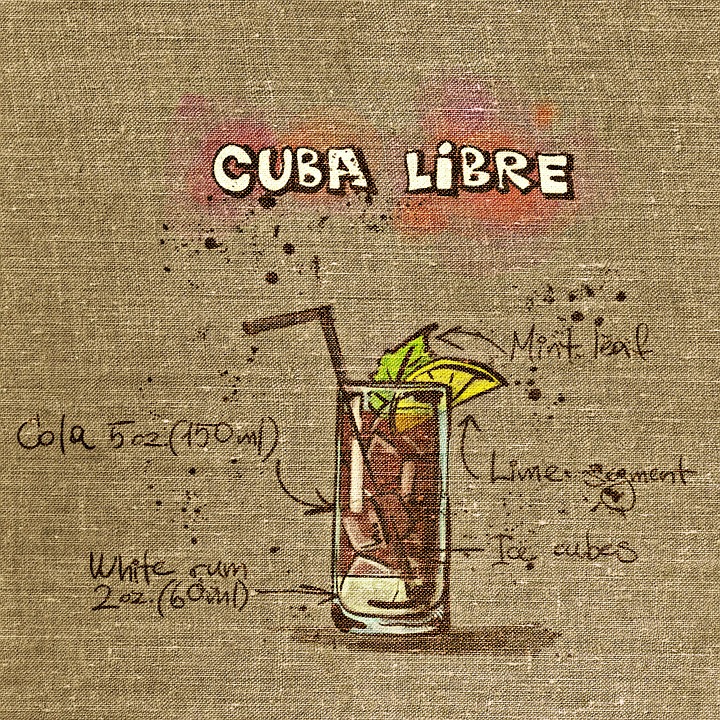 CUBA LiBRE
Mint leaf
Cola 5oz(150ml)
Lime segment
Ice cubes
White rum
2oz.(60ml)